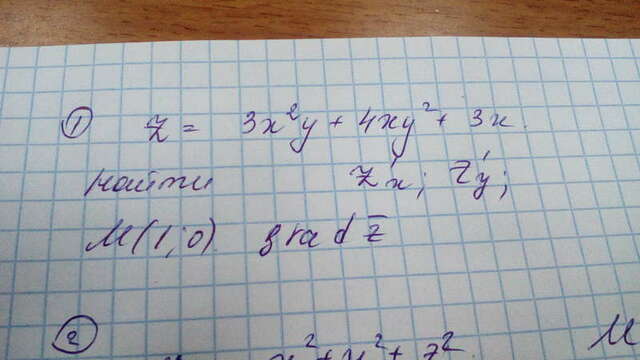 ① z = 3x²y + 4xy² + 3x.
найти z'x; z'y;
M(1;0). grad z
② x² + y² + z². M